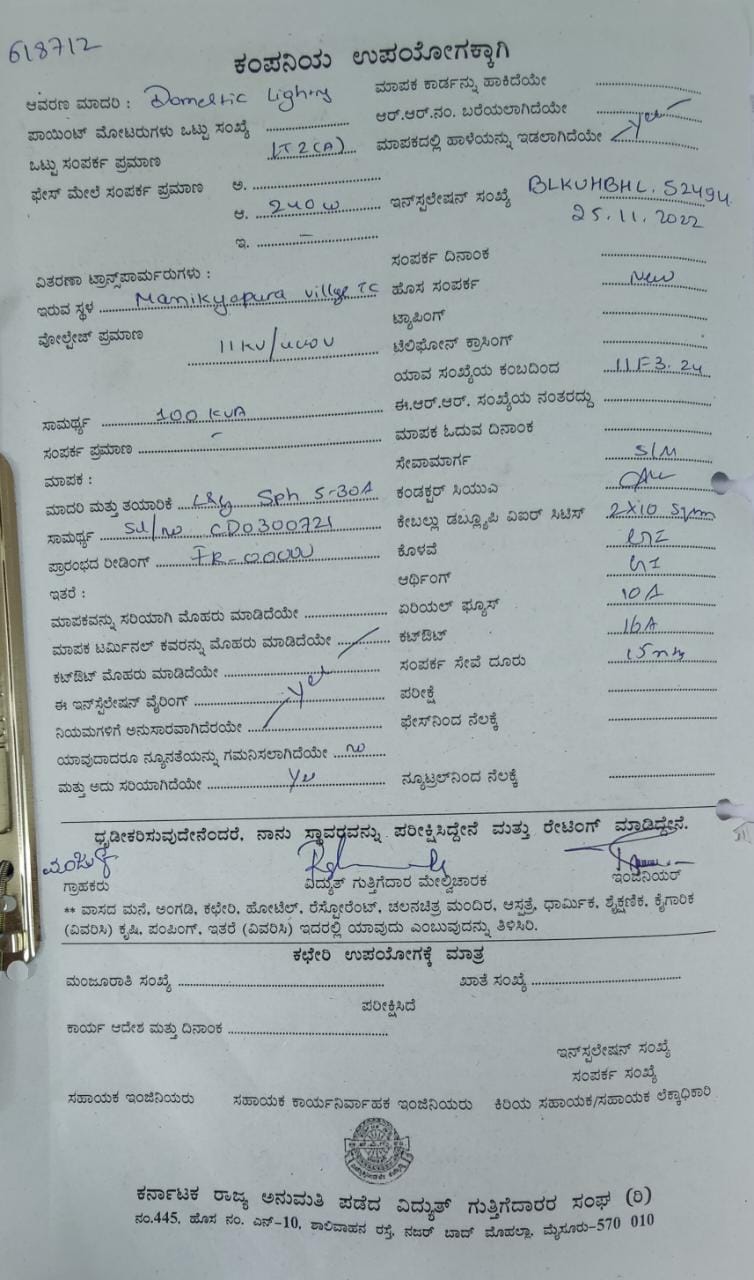 618712
ಕಂಪನಿಯ ಉಪಯೋಗಕ್ಕಾಗಿ
ಆವರಣ ಮಾದರಿ : Domestic Lighting
ಮಾಪಕ ಕಾರ್ಡನ್ನು ಹಾಕಿದೆಯೇ
ಪಾಯಿಂಟ್ ಮೋಟರುಗಳು ಒಟ್ಟು ಸಂಖ್ಯೆ
ಆರ್.ಆರ್.ನಂ. ಬರೆಯಲಾಗಿದೆಯೇ
ಒಟ್ಟು ಸಂಪರ್ಕ ಪ್ರಮಾಣ LT2(A)
ಮಾಪಕದಲ್ಲಿ ಹಾಳೆಯನ್ನು ಇಡಲಾಗಿದೆಯೇ yes
ಫೇಸ್ ಮೇಲೆ ಸಂಪರ್ಕ ಪ್ರಮಾಣ ಅ.
ಆ. 240W
ಇನ್‌ಸ್ಪಲೇಷನ್ ಸಂಖ್ಯೆ BLKUHBHL. 52494
25.11.2022
ಇ. –
ಸಂಪರ್ಕ ದಿನಾಂಕ
ವಿತರಣಾ ಟ್ರಾನ್ಸ್‌ಪಾರ್ಮರುಗಳು :
ಹೊಸ ಸಂಪರ್ಕ New
ಇರುವ ಸ್ಥಳ Manikyapura village TC
ಟ್ಯಾಪಿಂಗ್
ವೋಲ್ಟೇಜ್ ಪ್ರಮಾಣ 11KV/440V
ಟೆಲಿಫೋನ್ ಕ್ರಾಸಿಂಗ್
ಯಾವ ಸಂಖ್ಯೆಯ ಕಂಬದಿಂದ 11F3.24
ಸಾಮರ್ಥ್ಯ 100 KVA
ಈ.ಆರ್.ಆರ್. ಸಂಖ್ಯೆಯ ನಂತರದ್ದು
ಸಂಪರ್ಕ ಪ್ರಮಾಣ –
ಮಾಪಕ ಓದುವ ದಿನಾಂಕ
ಮಾಪಕ :
ಸೇವಾಮಾರ್ಗ S/M
ಮಾದರಿ ಮತ್ತು ತಯಾರಿಕೆ L&G Sph 5-30A
ಕಂಡಕ್ಟರ್ ಸಿಯುಎ
ಸಾಮರ್ಥ್ಯ Sl/no CD0300721
ಕೇಬಲ್ಲು ಡಬ್ಲ್ಯೂಪಿ ವಿಐರ್ ಸಿಟಿಸ್ 2X10 Sqmm
ಪ್ರಾರಂಭದ ರೀಡಿಂಗ್
ಕೊಳವೆ GI
ಇತರೆ :
ಆರ್ಥಿಂಗ್ GI
ಮಾಪಕವನ್ನು ಸರಿಯಾಗಿ ಮೊಹರು ಮಾಡಿದೆಯೇ
ಏರಿಯಲ್ ಫ್ಯೂಸ್ 10A
ಮಾಪಕ ಟರ್ಮಿನಲ್ ಕವರನ್ನು ಮೊಹರು ಮಾಡಿದೆಯೇ
ಕಟ್‌ಔಟ್ 16A
ಕಟ್‌ಔಟ್ ಮೊಹರು ಮಾಡಿದೆಯೇ
ಸಂಪರ್ಕ ಸೇವೆ ದೂರು 15mts
ಈ ಇನ್‌ಸ್ಟೆಲೇಷನ್ ವೈರಿಂಗ್ yes
ಪರೀಕ್ಷೆ
ನಿಯಮಗಳಿಗೆ ಅನುಸಾರವಾಗಿದೆರಯೇ
ಫೇಸ್‌ನಿಂದ ನೆಲಕ್ಕೆ
ಯಾವುದಾದರೂ ನ್ಯೂನತೆಯನ್ನು ಗಮನಿಸಲಾಗಿದೆಯೇ no
ಮತ್ತು ಅದು ಸರಿಯಾಗಿದೆಯೇ yes
ನ್ಯೂಟ್ರಲ್‌ನಿಂದ ನೆಲಕ್ಕೆ
ಧೃಡೀಕರಿಸುವುದೇನೆಂದರೆ, ನಾನು ಸ್ಥಾವರವನ್ನು ಪರೀಕ್ಷಿಸಿದ್ದೇನೆ ಮತ್ತು ರೇಟಿಂಗ್ ಮಾಡಿದ್ದೇನೆ.
ಗ್ರಾಹಕರು ವಿದ್ಯುತ್ ಗುತ್ತಿಗೆದಾರ ಮೇಲ್ವಿಚಾರಕ ಇಂಜಿನಿಯರ್
** ವಾಸದ ಮನೆ, ಅಂಗಡಿ, ಕಛೇರಿ, ಹೋಟೆಲ್, ರೆಸ್ಟೋರೆಂಟ್, ಚಲನಚಿತ್ರ ಮಂದಿರ, ಆಸ್ಪತ್ರೆ, ಧಾರ್ಮಿಕ, ಶೈಕ್ಷಣಿಕ, ಕೈಗಾರಿಕ
(ವಿವರಿಸಿ) ಕೃಷಿ, ಪಂಪಿಂಗ್, ಇತರೆ (ವಿವರಿಸಿ) ಇದರಲ್ಲಿ ಯಾವುದು ಎಂಬುವುದನ್ನು ತಿಳಿಸಿರಿ.
ಕಛೇರಿ ಉಪಯೋಗಕ್ಕೆ ಮಾತ್ರ
ಮಂಜೂರಾತಿ ಸಂಖ್ಯೆ ಖಾತೆ ಸಂಖ್ಯೆ
ಪರೀಕ್ಷಿಸಿದೆ
ಕಾರ್ಯ ಆದೇಶ ಮತ್ತು ದಿನಾಂಕ
ಇನ್‌ಸ್ಪಲೇಷನ್ ಸಂಖ್ಯೆ
ಸಂಪರ್ಕ ಸಂಖ್ಯೆ
ಸಹಾಯಕ ಇಂಜಿನಿಯರು ಸಹಾಯಕ ಕಾರ್ಯನಿರ್ವಾಹಕ ಇಂಜಿನಿಯರು ಕಿರಿಯ ಸಹಾಯಕ/ಸಹಾಯಕ ಲೆಕ್ಕಾಧಿಕಾರಿ
ಕರ್ನಾಟಕ ರಾಜ್ಯ ಅನುಮತಿ ಪಡೆದ ವಿದ್ಯುತ್ ಗುತ್ತಿಗೆದಾರರ ಸಂಘ (ರಿ)
ನಂ.445, ಹೊಸ ನಂ. ಎನ್-10, ಶಾಲಿವಾಹನ ರಸ್ತೆ, ನಜರ್ ಬಾದ್ ಮೊಹಲ್ಲಾ, ಮೈಸೂರು-570 010